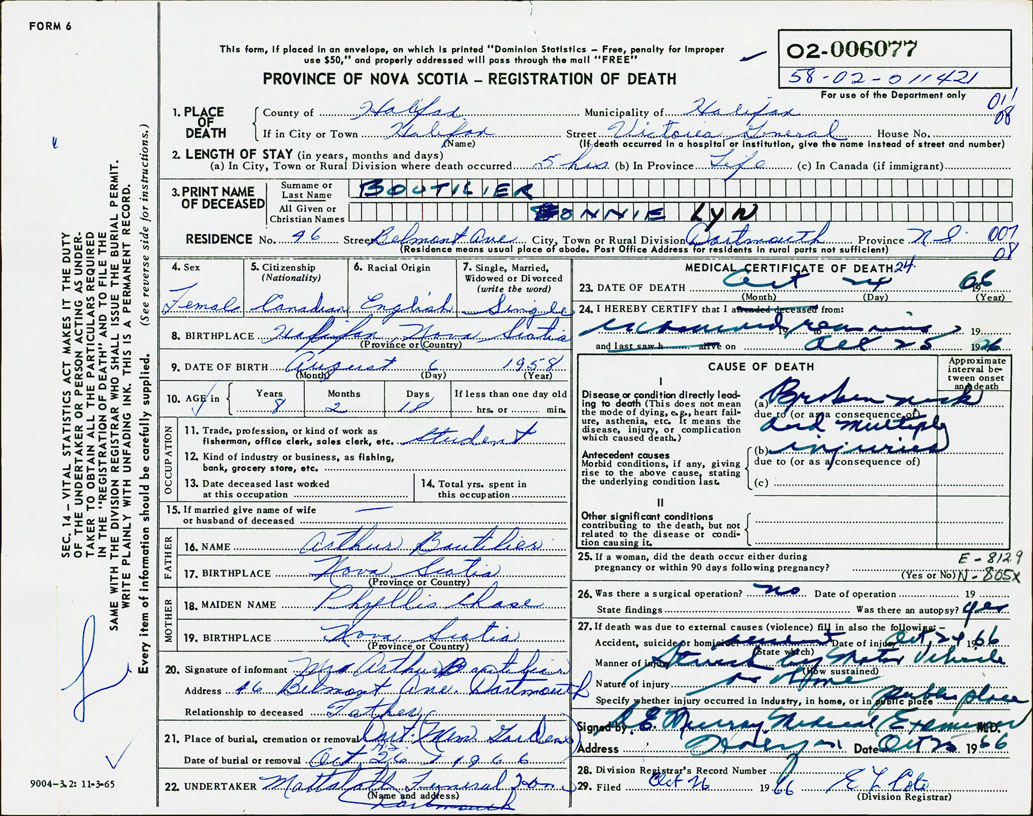 FORM 6
This form, if placed in an envelope, on which is printed "Dominion Statistics – Free, penalty for improper
use $50," and properly addressed will pass through the mail "FREE"
PROVINCE OF NOVA SCOTIA – REGISTRATION OF DEATH
02-006077
58-02-011421
For use of the Department only
011
08
1. PLACE OF DEATH
County of Halifax Municipality of Halifax
If in City or Town Halifax Street Victoria General House No.
(Name) (If death occurred in a hospital or institution, give the name instead of street and number)
2. LENGTH OF STAY (in years, months and days)
(a) In City, Town or Rural Division where death occurred 5 hrs (b) In Province Life (c) In Canada (if immigrant)
3. PRINT NAME OF DECEASED
Surname or Last Name BOUTILIER
All Given or Christian Names BONNIE LYN
RESIDENCE No. 46 Street Belmont Ave City, Town or Rural Division Dartmouth Province N.S. 007
08
(Residence means usual place of abode. Post Office Address for residents in rural parts not sufficient)
4. Sex
Female
5. Citizenship
(Nationality)
Canadian
6. Racial Origin
English
7. Single, Married,
Widowed or Divorced
(write the word)
Single
8. BIRTHPLACE Halifax Nova Scotia
(Province or Country)
9. DATE OF BIRTH August 6 1958
(Month) (Day) (Year)
10. AGE in
Years Months Days If less than one day old
8 2 18 hrs. or min.
OCCUPATION
11. Trade, profession, or kind of work as
fisherman, office clerk, sales clerk, etc. Student
12. Kind of industry or business, as fishing,
bank, grocery store, etc.
13. Date deceased last worked
at this occupation
14. Total yrs. spent in
this occupation
15. If married give name of wife
or husband of deceased —
FATHER
16. NAME Arthur Boutilier
17. BIRTHPLACE Nova Scotia
(Province or Country)
MOTHER
18. MAIDEN NAME Phyllis Chase
19. BIRTHPLACE Nova Scotia
(Province or Country)
20. Signature of informant Mrs Arthur Boutilier
Address 46 Belmont Ave. Dartmouth
Relationship to deceased Father
21. Place of burial, cremation or removal Dart. Mem. Gardens
Date of burial or removal Oct. 26 1966
22. UNDERTAKER Mattatall Funeral Home
(Name and address)
Dartmouth
MEDICAL CERTIFICATE OF DEATH 24.
23. DATE OF DEATH Oct 24 1966
(Month) (Day) (Year)
24. I HEREBY CERTIFY that I attended deceased from:
examined remains 19
and last saw h alive on Oct 25 1966
CAUSE OF DEATH
Approximate
interval be-
tween onset
and death
I
Disease or condition directly lead-
ing to death (This does not mean
the mode of dying, e.g., heart fail-
ure, asthenia, etc. It means the
disease, injury, or complication
which caused death.)
(a) Broken neck
due to (or as a consequence of)
and multiple
Antecedent causes
Morbid conditions, if any, giving
rise to the above cause, stating
the underlying condition last.
(b) injuries
due to (or as a consequence of)
(c)
II
Other significant conditions
contributing to the death, but not
related to the disease or condi-
tion causing it.
25. If a woman, did the death occur either during
pregnancy or within 90 days following pregnancy?
(Yes or No)
E-8129
N-805X
26. Was there a surgical operation? no Date of operation 19
State findings Was there an autopsy? yes
27. If death was due to external causes (violence) fill in also the following:–
Accident, suicide or homicide accident Date of injury Oct. 24 1966
(State which)
Manner of injury Struck by Motor Vehicle
(How sustained)
Nature of injury
Specify whether injury occurred in Industry, in home, or in public place public place
Signed by E. Murray Medical Examiner M.D.
Address Date Oct 26 1966
28. Division Registrar's Record Number
29. Filed Oct 26 1966
(Division Registrar)
SEC. 14 – VITAL STATISTICS ACT MAKES IT THE DUTY
OF THE UNDERTAKER OR PERSON ACTING AS UNDER-
TAKER TO OBTAIN ALL THE PARTICULARS REQUIRED
IN THE "REGISTRATION OF DEATH" AND TO FILE THE
SAME WITH THE DIVISION REGISTRAR WHO SHALL ISSUE THE BURIAL PERMIT.
WRITE PLAINLY WITH UNFADING INK. THIS IS A PERMANENT RECORD.
Every item of information should be carefully supplied. (See reverse side for instructions.)
9004-3.2: 11-3-65